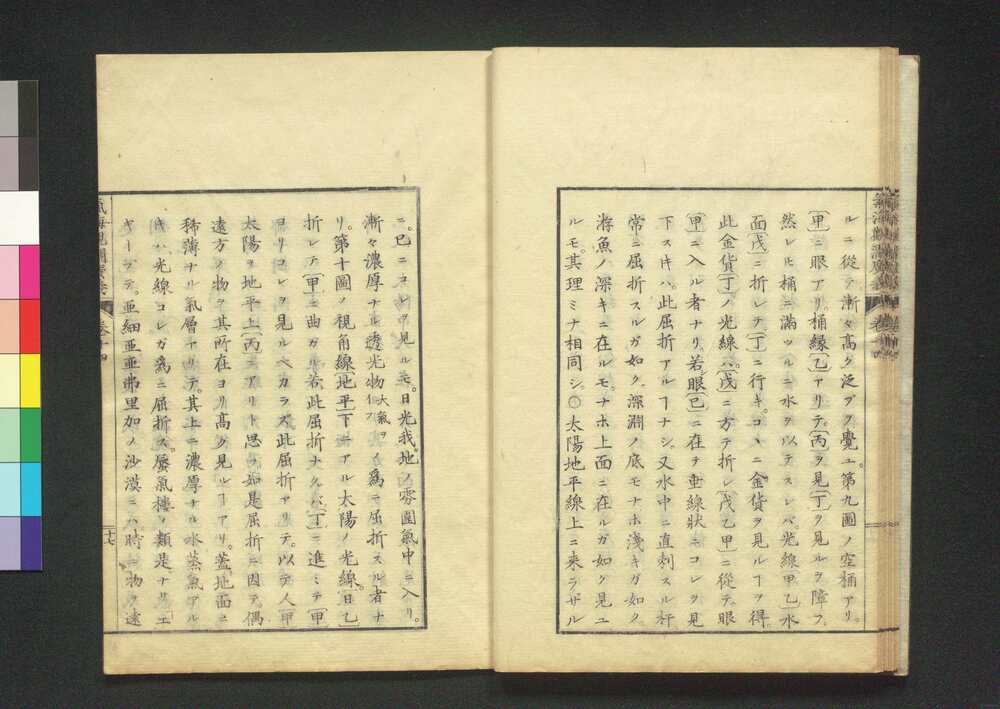 ルニ從テ漸々高ク泛ブヲ覺ユ。第九圖ノ空桶アリ。
甲ニ眼アリ。桶緣乙アリテ。丙ヲ見丁ヲ見ルヲ障フ。
然レ𪜈桶ニ滿ツルニ水ヲ以テスレバ光線甲乙水
面戊ニ折レテ丁ニ行キ。コヽニ金貨ヲ見ルヿヲ得。
此金貨丁ノ光線ハ。戊ニ方テ折レ戊乙甲ニ從テ。眼
甲ニ入ル者ナリ。若シ眼己ニ在テ垂線狀ニコレヲ見
下ス𪜈ハ。此屈折アルヿナシ。又水中ニ直刺スル杆
常ニ屈折スルガ如ク。深淵ノ底モナホ淺キガ如ク
游魚ノ深キニ在ルモ。ナホ上面ニ在ルガ如ク見ユ
ルモ。其理ミナ相同シ。○太陽地平線上ニ来ラザル
氣海觀瀾廣義 卷十四
ニ。已ニコレヲ見ルモ。日光我地ノ雰圍氣中ニ入リ。
漸々濃厚ナル透光物大氣ヲ云フノ爲ニ屈折スル者ナ
リ。第十圖ノ視角線地平下ニアル太陽ノ光線。日乙
折レテ甲ニ曲ガル。若此屈折ナクバ。丁ニ進ミテ甲
ヨリコレヲ見ルベカラズ此屈折アリテ。以テ人甲
太陽ヲ地平上丙ニアリト思フ。如是屈折ニ因テ。偶
遠方ノ物ヲ其所在ヨリ高ク見ルヿアリ。蓋地面ニ
稀薄ナル氣層アリテ。其上ニ濃厚ナル水蒸氣アル
𪜈ハ光線コレガ爲ニ屈折ス。蜃氣樓ノ類是ナリ。エ
ギープテ。亜細亜亜弗里加ノ沙漠ニハ。時ニ物ヲ遠